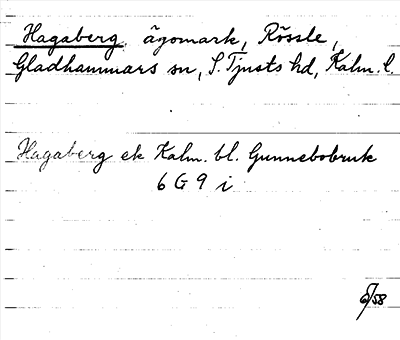 Hagaberg, ägomark, Rössle,
Gladhammars sn, S. Tjusts hd, Kalm. l.
Hagaberg ek Kalm. bl. Gunnebobruk
6 G 9 i